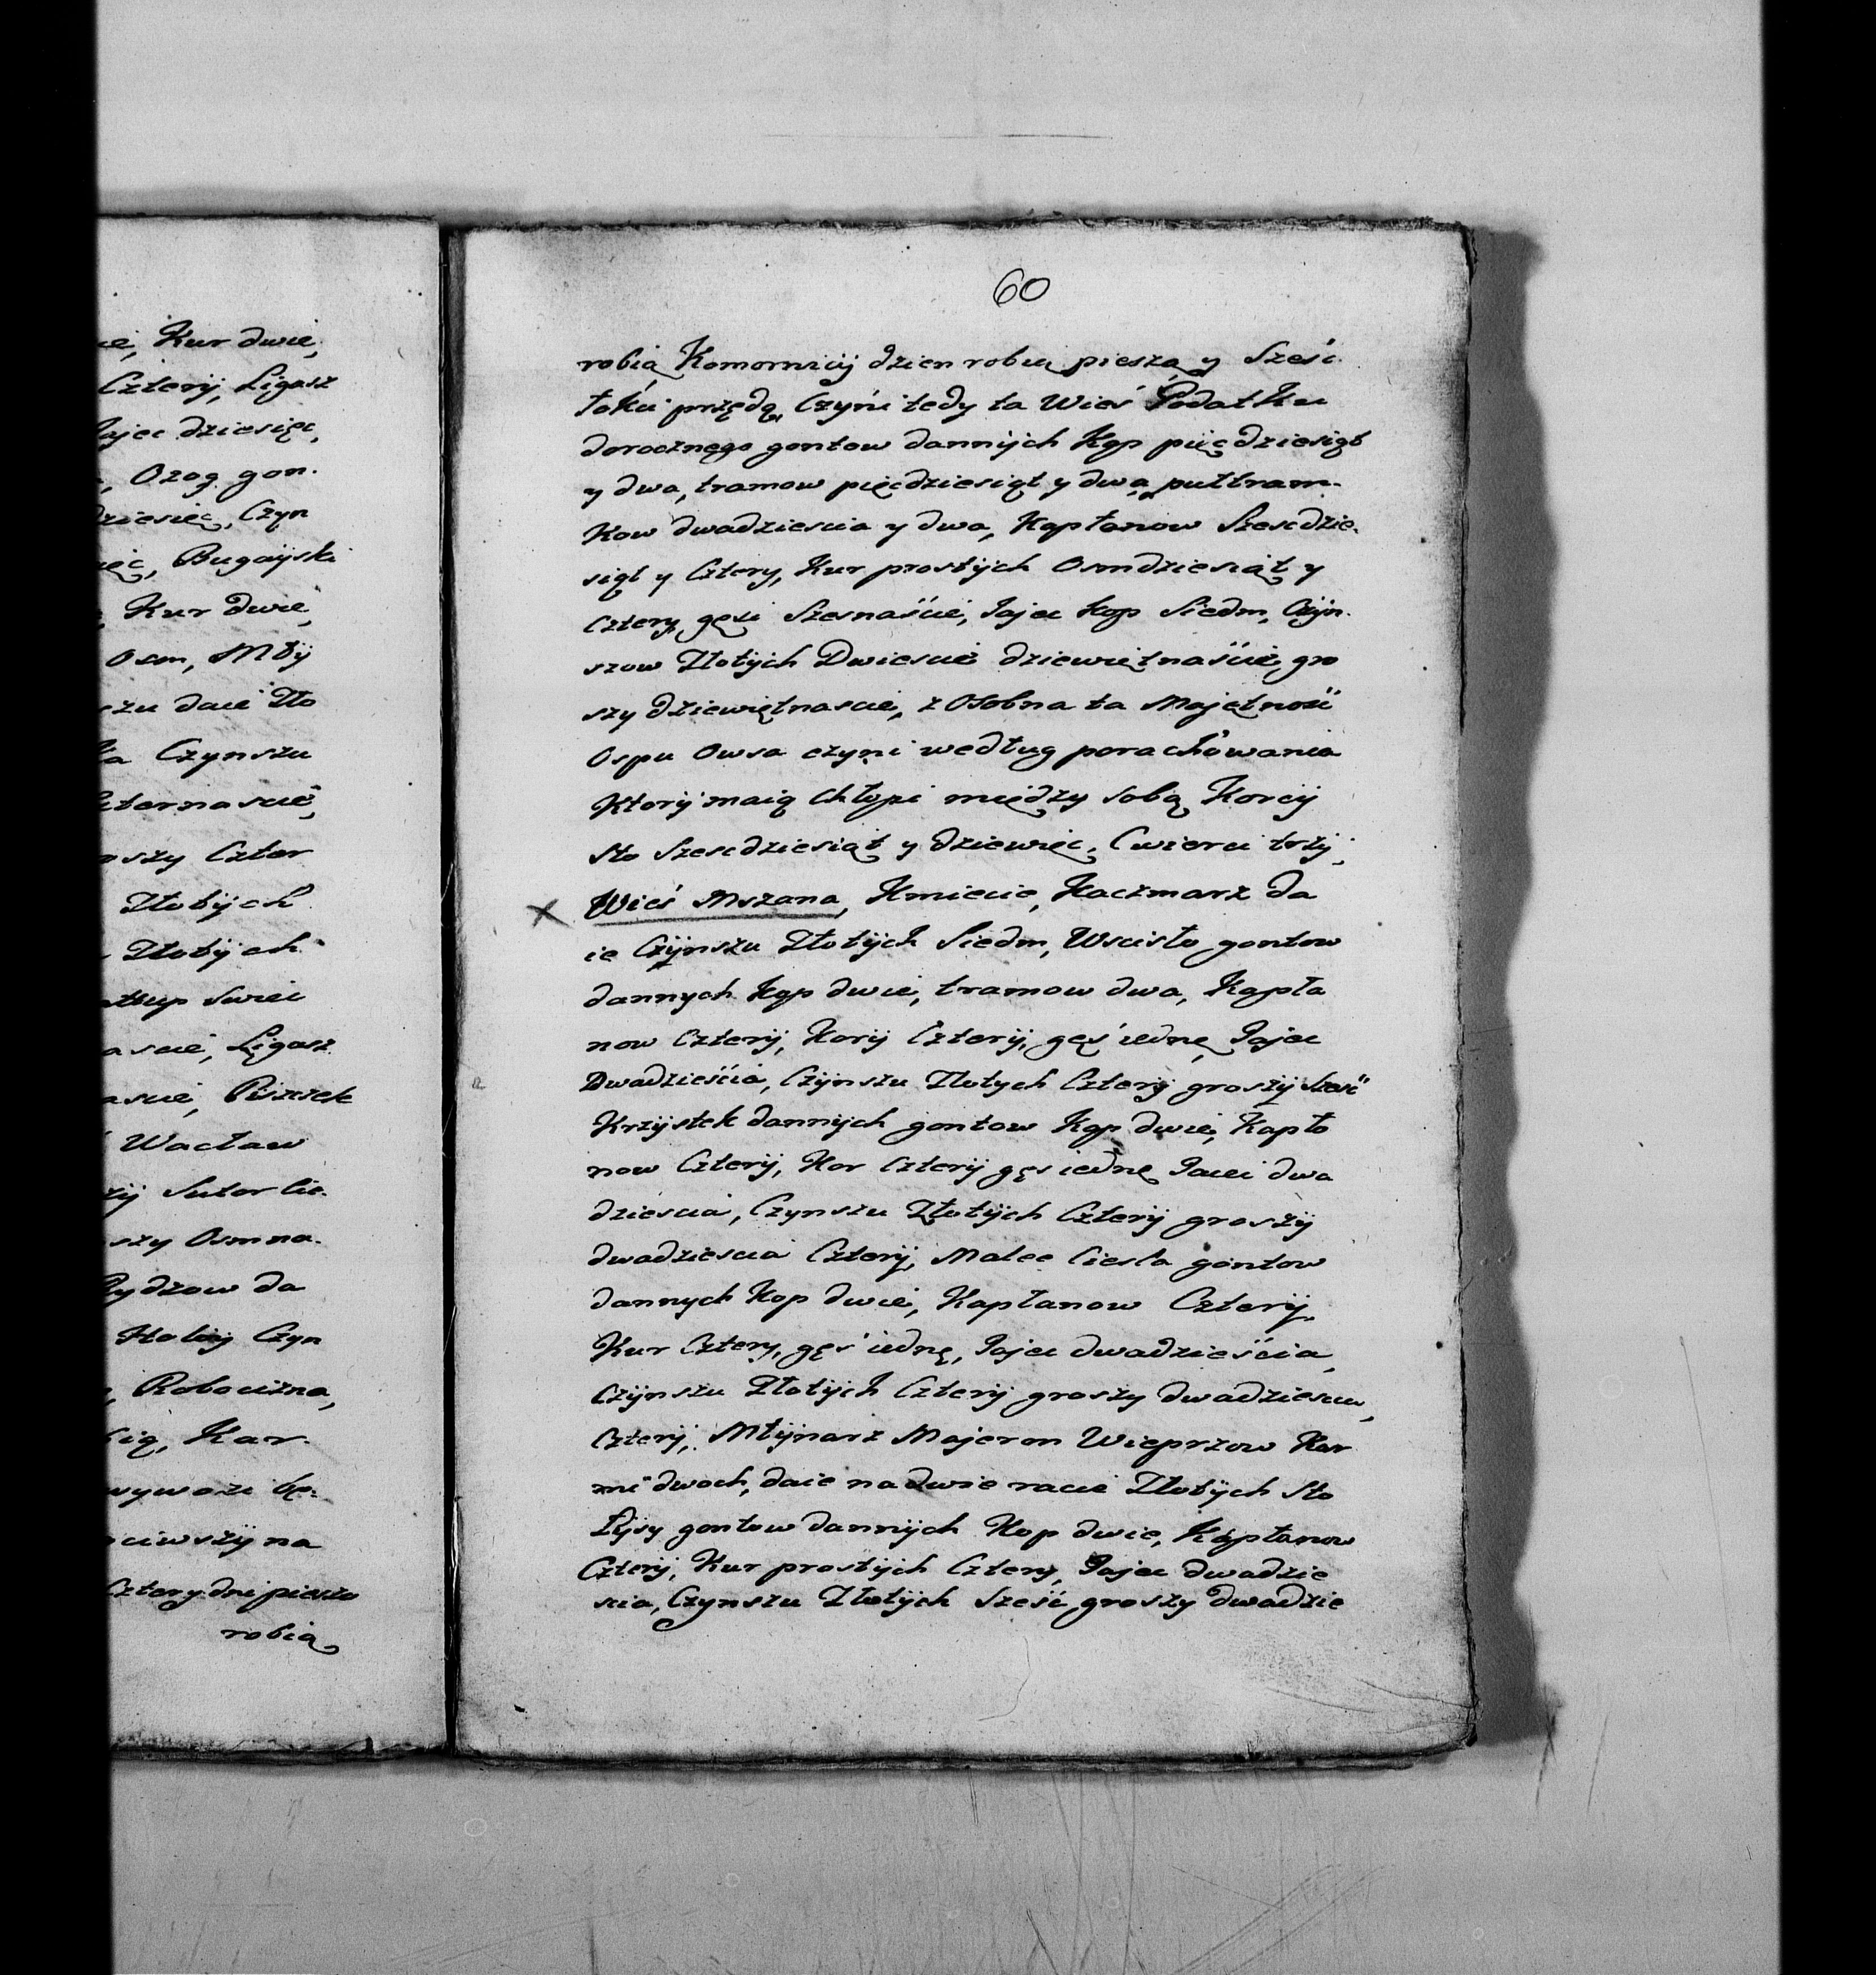 ie, Kur dwie,
Czterij, Ligasz
Jajec dziesięc,
Ozog gon.
dziesięc, Czyn
ięc, Bugaÿski
Kur dwie,
osm, Młÿ
szu daie Zło
ła Czynszu
czternascie,
szy Czter
Złotÿch
Złotÿch
Swiec
ascie, Ligasz
ascie, Piszczek
Wacław
Sutor Cie.
szy Osmna.
Rydzow da
Czyn
Robocizna,
bią, Kar.
wywozi
ciwszÿ na
Cztery dni pieszo
robia
60
robią Komornicÿ dzien robią pieszą y Sześć
łokci przędą, Czyni tedy ta Wieś Podatku
dorocznego gontow dannÿch Kop pięcdziesiąt
y dwa, tramow pięcdziesiąt y dwa, pułtram.
Kow dwadziescia y dwa, Kapłanow Szescdzie.
siąt y Cztery, Kur prostÿch Osmdziesiąt y
Cztery, gęsi Szesnaście, Jajec Kop Siedm, Czÿn.
szow Złotÿch Dwiescie dziewiętnaście, gro
szy dziewiętnascie, z Osobna ta Majętność
Ospu Owsa czyni według porachowania
Ktorÿ maią Chłopi między sobą Korcÿ
Sto Szescdziesiąt y dziewięc, Cwierci trzÿ.
Wieś Mszana, Kmiecie, Kaczmarz da
ie Czÿnszu Złotÿch Siedm, Wscisło gontow
dannych Kop dwie, tramow dwa, Kapła
now Czterÿ, Korÿ Czterÿ, gęś iednę, Jajec
Dwadzieścia, Czÿnszu Złotych Czterÿ groszÿ Sześć
Krzÿstek dannÿch gontow Kop dwie, Kapło
now Czterÿ, Kor Czterÿ gęs iednę Jaiec dwa
dziescia, Czynszu Złotÿch Czterÿ groszÿ
dwadziescia Czterÿ, Malec Ciesla gontow
dannych Kop dwie, Kapłanow Czterÿ,
Kur Cztery, gęś iednę, Jajec dwadzieścia,
Czÿnszu Złotÿch Czterÿ groszy dwadziescia,
Czterÿ, Młÿnarz Majeron Wieprzow Kar
mi dwoch, daie na dwie racie Złotÿch Sto
Łysy gontow dannÿch Kop dwie, Kapłanow
Czterÿ, Kur prostÿch Cztery, Jajec dwadzie
scia, Czynszu Złotÿch Sześć groszy dwadzie